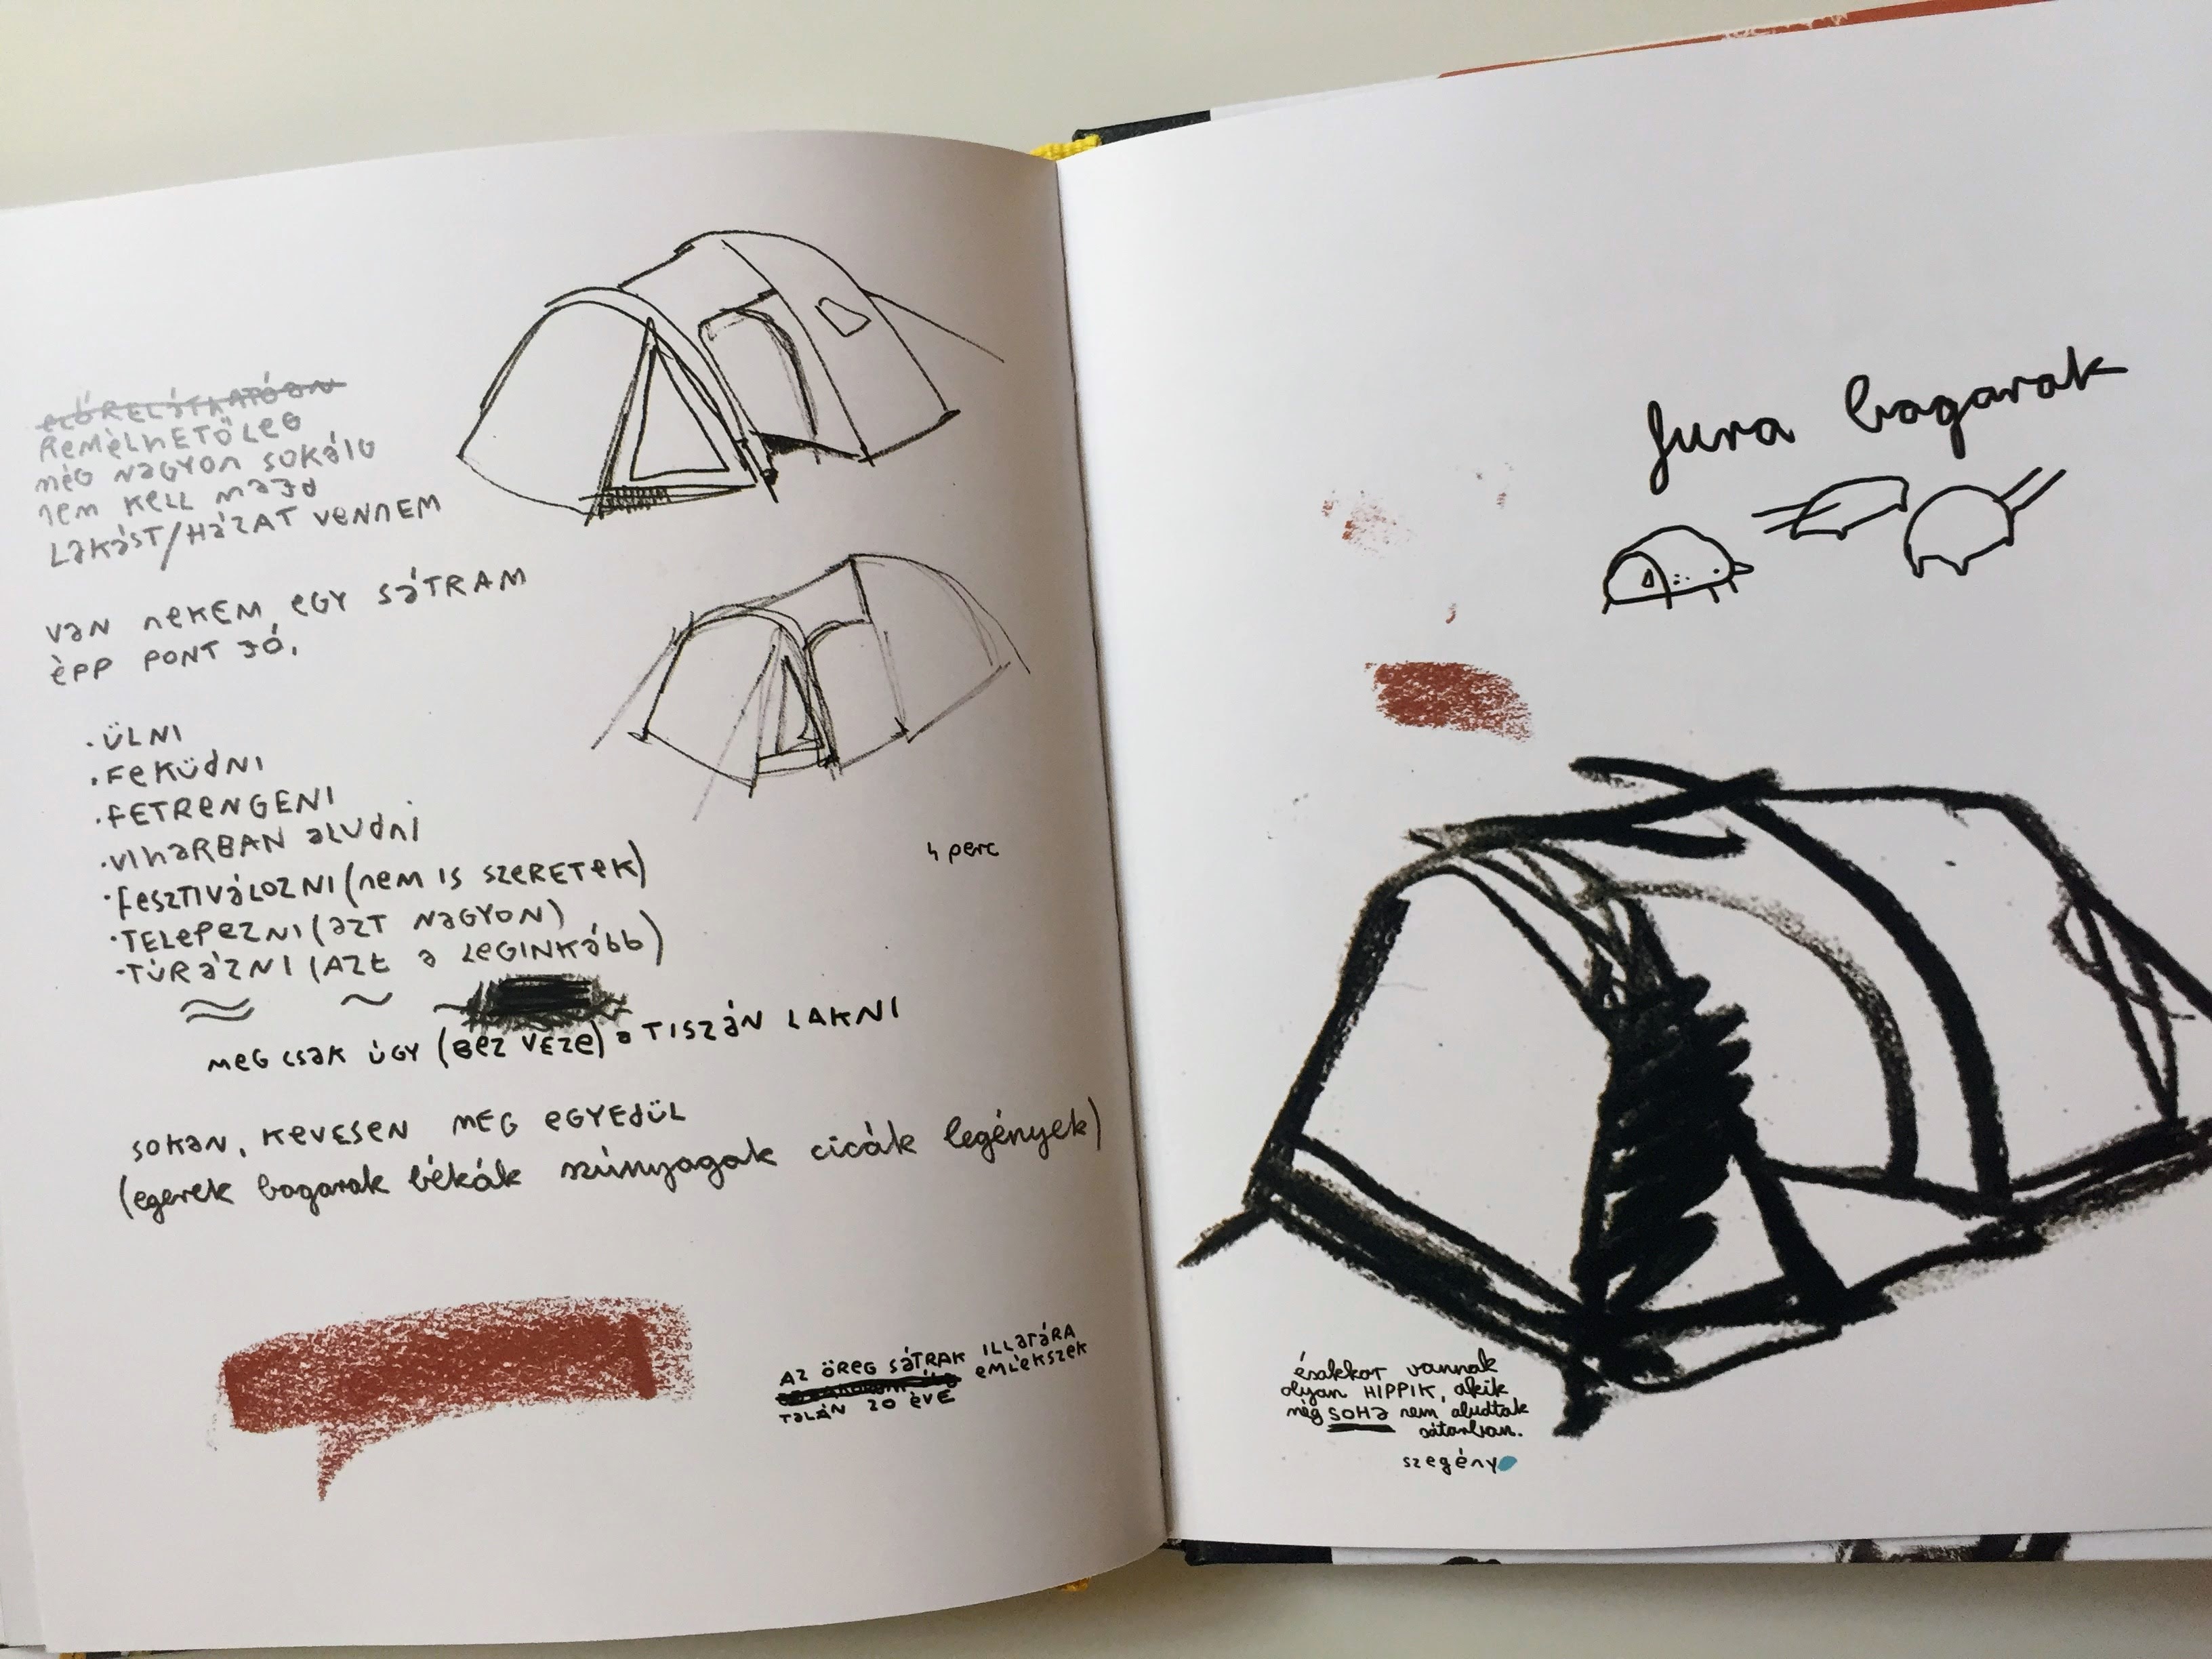 előreláthatóan
remélhetőleg
még nagyon sokáig
nem kell majd
lakást/házat vennem
van nekem egy sátram
épp pont jó,
• ülni
• feküdni
• fetrengeni
• viharban aludni
• fesztiválozni (nem is szeretek)
• telepezni (azt nagyon)
• túrázni (azt a leginkább)
meg csak úgy (bez veze) a Tiszán lakni
sokan, kevesen meg egyedül
(egerek bogarak békák szúnyogok cicák legények)
4 perc
az öreg sátrak illatára
emlékszek
talán 20 éve
fura bogarak
ésakkor vannak
olyan HIPPIK, akik
még SOHA nem aludtak
sátorban.
szegény